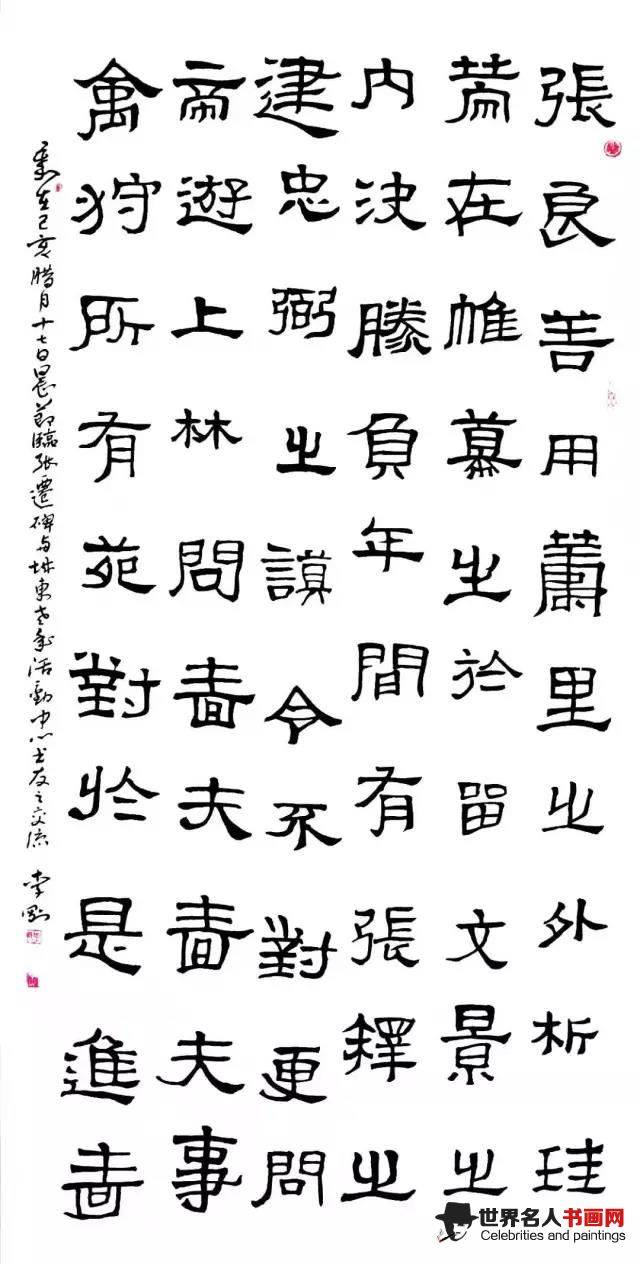 張良善用蕭里之外析珪
策在帷幕之於留文景之
内決勝負年間有張釋之
建忠弼之謨令不對更問
帝遊上林問嗇夫嗇夫事
禽狩所有苑對於是進嗇
歲在己亥腊月十七日晨節臨張遷碑与城東老年活動中心书友之交流 李剛
世界名人书画网
Celebrities and paintings